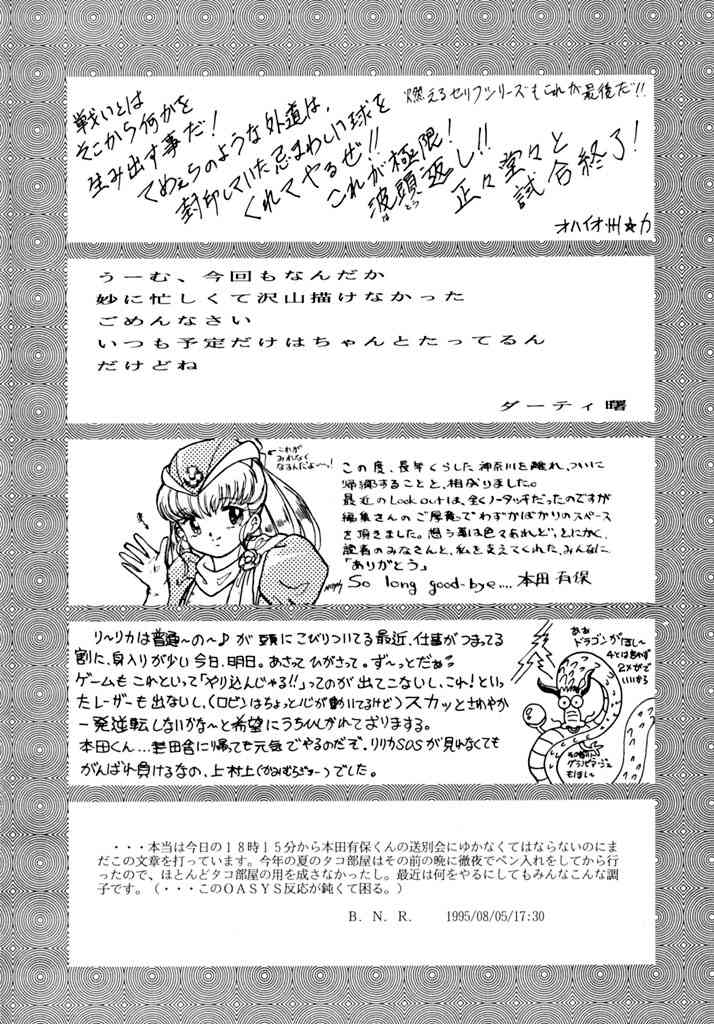 燃えるセリフシリーズもこれが最後だ!!
戦いとは
そこから何かを
生み出す事だ!
てめぇらのような外道は、
封印していた忌まわしい球を
くれてやるぜ!!
これが極限!
波頭返し!!
はとう
正々堂々と
試合終了!
オハイオ州☆力
うーむ、今回もなんだか
妙に忙しくて沢山描けなかった
ごめんなさい
いつも予定だけはちゃんとたってるん
だけどね
ダーティ曙
←これが
みれなく
なるんだよ〜!
この度、長年くらした神奈川を離れ、ついに
帰郷することと、相成りました。
最近のLook outは、全くノータッチだったのですが
編集さんのご厚意でわずかばかりのスペース
を頂きました。想う事は色々あれど、とにかく、
読者のみなさんと、私を支えてくれた、みんなに
「ありがとう」
So long good-bye.... 本田有保
リ〜リカは普通〜の〜♪が頭にこびりついてる最近、仕事がつまってる
割に、身入りが少い今日、明日。あさってひがさって。ず〜っとだぁ〜
ゲームもこれといって「やり込んじゃる!!」ってのが出てこないし、これ!といっ
たレーザーも出ないし、(ロビンはちょっと心が動いてるけど)スカッとさわやか
一発逆転しないかな〜と希望にうちひしがれております。
本田くん...田舎に帰っても元気でやるのだぞ、リリカSOSが見れなくても
がんばれ負けるなの、上村上(かみむらじょー)でした。
あぁ
ドラゴンがほし〜
4とは言わず
2×がで
いいから
もほし〜
・・・本当は今日の18時15分から本田有保くんの送別会にゆかなくてはならないのにま
だこの文章を打っています。今年の夏のタコ部屋はその前の晩に徹夜でペン入れをしてから行
ったので、ほとんどタコ部屋の用を成さなかったし。最近は何をやるにしてもみんなこんな調
子です。(・・・このOASYS反応が鈍くて困る。)
B. N. R. 1995/08/05/17:30